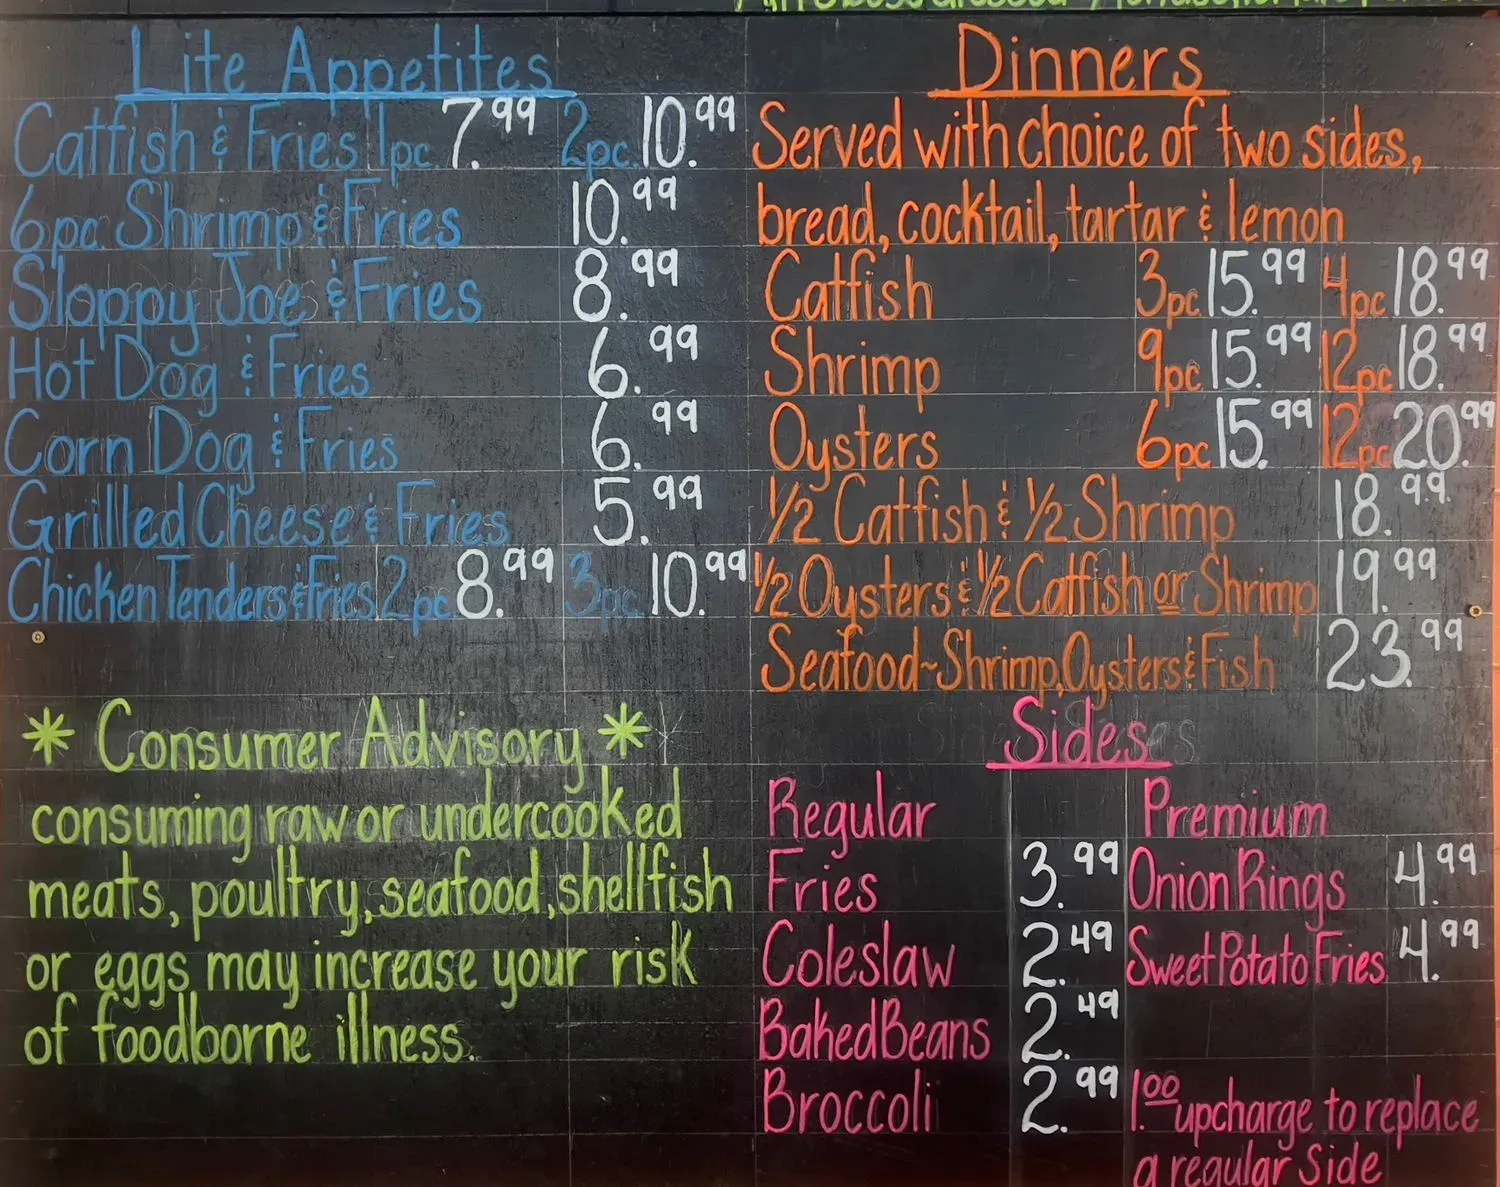 Lite Appetites
Catfish & Fries 1pc 7.99 2pc 10.99
6pc Shrimp & Fries 10.99
Sloppy Joe & Fries 8.99
Hot Dog & Fries 6.99
Corn Dog & Fries 6.99
Grilled Cheese & Fries 5.99
Chicken Tenders & Fries 2pc 8.99 3pc 10.99
* Consumer Advisory *
consuming raw or undercooked
meats, poultry, seafood, shellfish
or eggs may increase your risk
of foodborne illness.
Dinners
Served with choice of two sides,
bread, cocktail, tartar & lemon
Catfish 3pc 15.99 4pc 18.99
Shrimp 9pc 15.99 12pc 18.99
Oysters 6pc 15.99 12pc 20.99
1/2 Catfish & 1/2 Shrimp 18.99
1/2 Oysters & 1/2 Catfish or Shrimp 19.99
Seafood~Shrimp, Oysters & Fish 23.99
Sides
Regular Premium
Fries 3.99 Onion Rings 4.99
Coleslaw 2.49 Sweet Potato Fries 4.99
Baked Beans 2.49
Broccoli 2.99 1.00 upcharge to replace
a regular Side